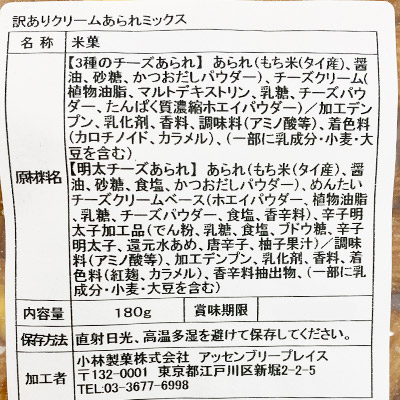 訳ありクリームあられミックス
名 称 米菓
【3種のチーズあられ】 あられ(もち米(タイ産)、醤
油、砂糖、かつおだしパウダー)、チーズクリーム(
植物油脂、マルトデキストリン、乳糖、チーズパウ
ダー、たんぱく質濃縮ホエイパウダー)／加工デン
プン、乳化剤、香料、調味料(アミノ酸等)、着色料
(カロチノイド、カラメル)、(一部に乳成分・小麦・大
豆を含む)
原材料名
【明太チーズあられ】 あられ(もち米(タイ産)、醤
油、砂糖、食塩、かつおだしパウダー)、めんたい
チーズクリームベース(ホエイパウダー、植物油脂
、乳糖、チーズパウダー、食塩、香辛料)、辛子明
太子加工品(でん粉、乳糖、食塩、ブドウ糖、辛子
明太子、還元水あめ、唐辛子、柚子果汁)／調味
料(アミノ酸等)、加工デンプン、乳化剤、香料、着
色料(紅麹、カラメル)、香辛料抽出物、(一部に乳
成分・小麦・大豆を含む)
内容量 180g 賞味期限
保存方法 直射日光、高温多湿を避けて保存してください。
加工者
小林製菓株式会社 アッセンブリープレイス
〒132-0001 東京都江戸川区新堀2-2-5
TEL:03-3677-6998